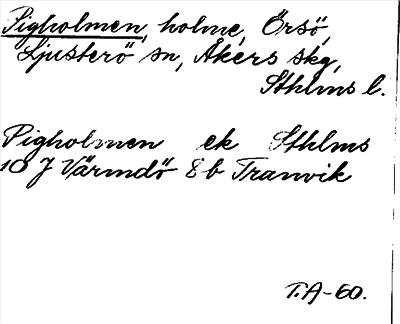 Pigholmen, holme, Örsö,
Ljusterö sn, Åkers skg,
Sthlms l.
Pigholmen ek Sthlms
10 J Värmdö 8b Tranvik
T.A-60.